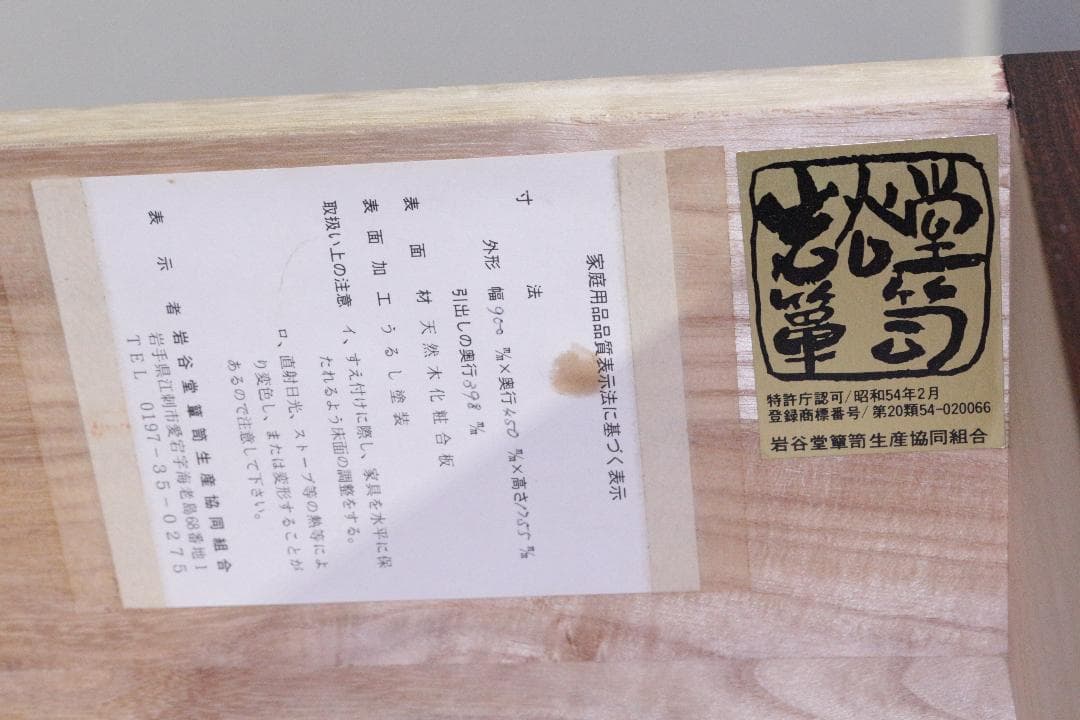 家庭用品品質表示法に基づく表示
寸法
外形 幅900m/m×奥行450m/m×高さ1755m/m
引出しの奥行398m/m
表面材 天然木化粧合板
表面加工 うるし塗装
取扱い上の注意 イ、すえ付けに際し、家具を水平に保
たれるよう床面の調整をする。
ロ、直射日光、ストーブ等の熱等によ
り変色し、または変形することが
あるので注意して下さい。
表示者 岩谷堂簞笥生産協同組合
岩手県江刺市愛宕字海老島68番地1
TEL 0197-35-0275
岩谷堂
簞笥
特許庁認可/昭和54年2月
登録商標番号/第20類54-020066
岩谷堂簞笥生産協同組合